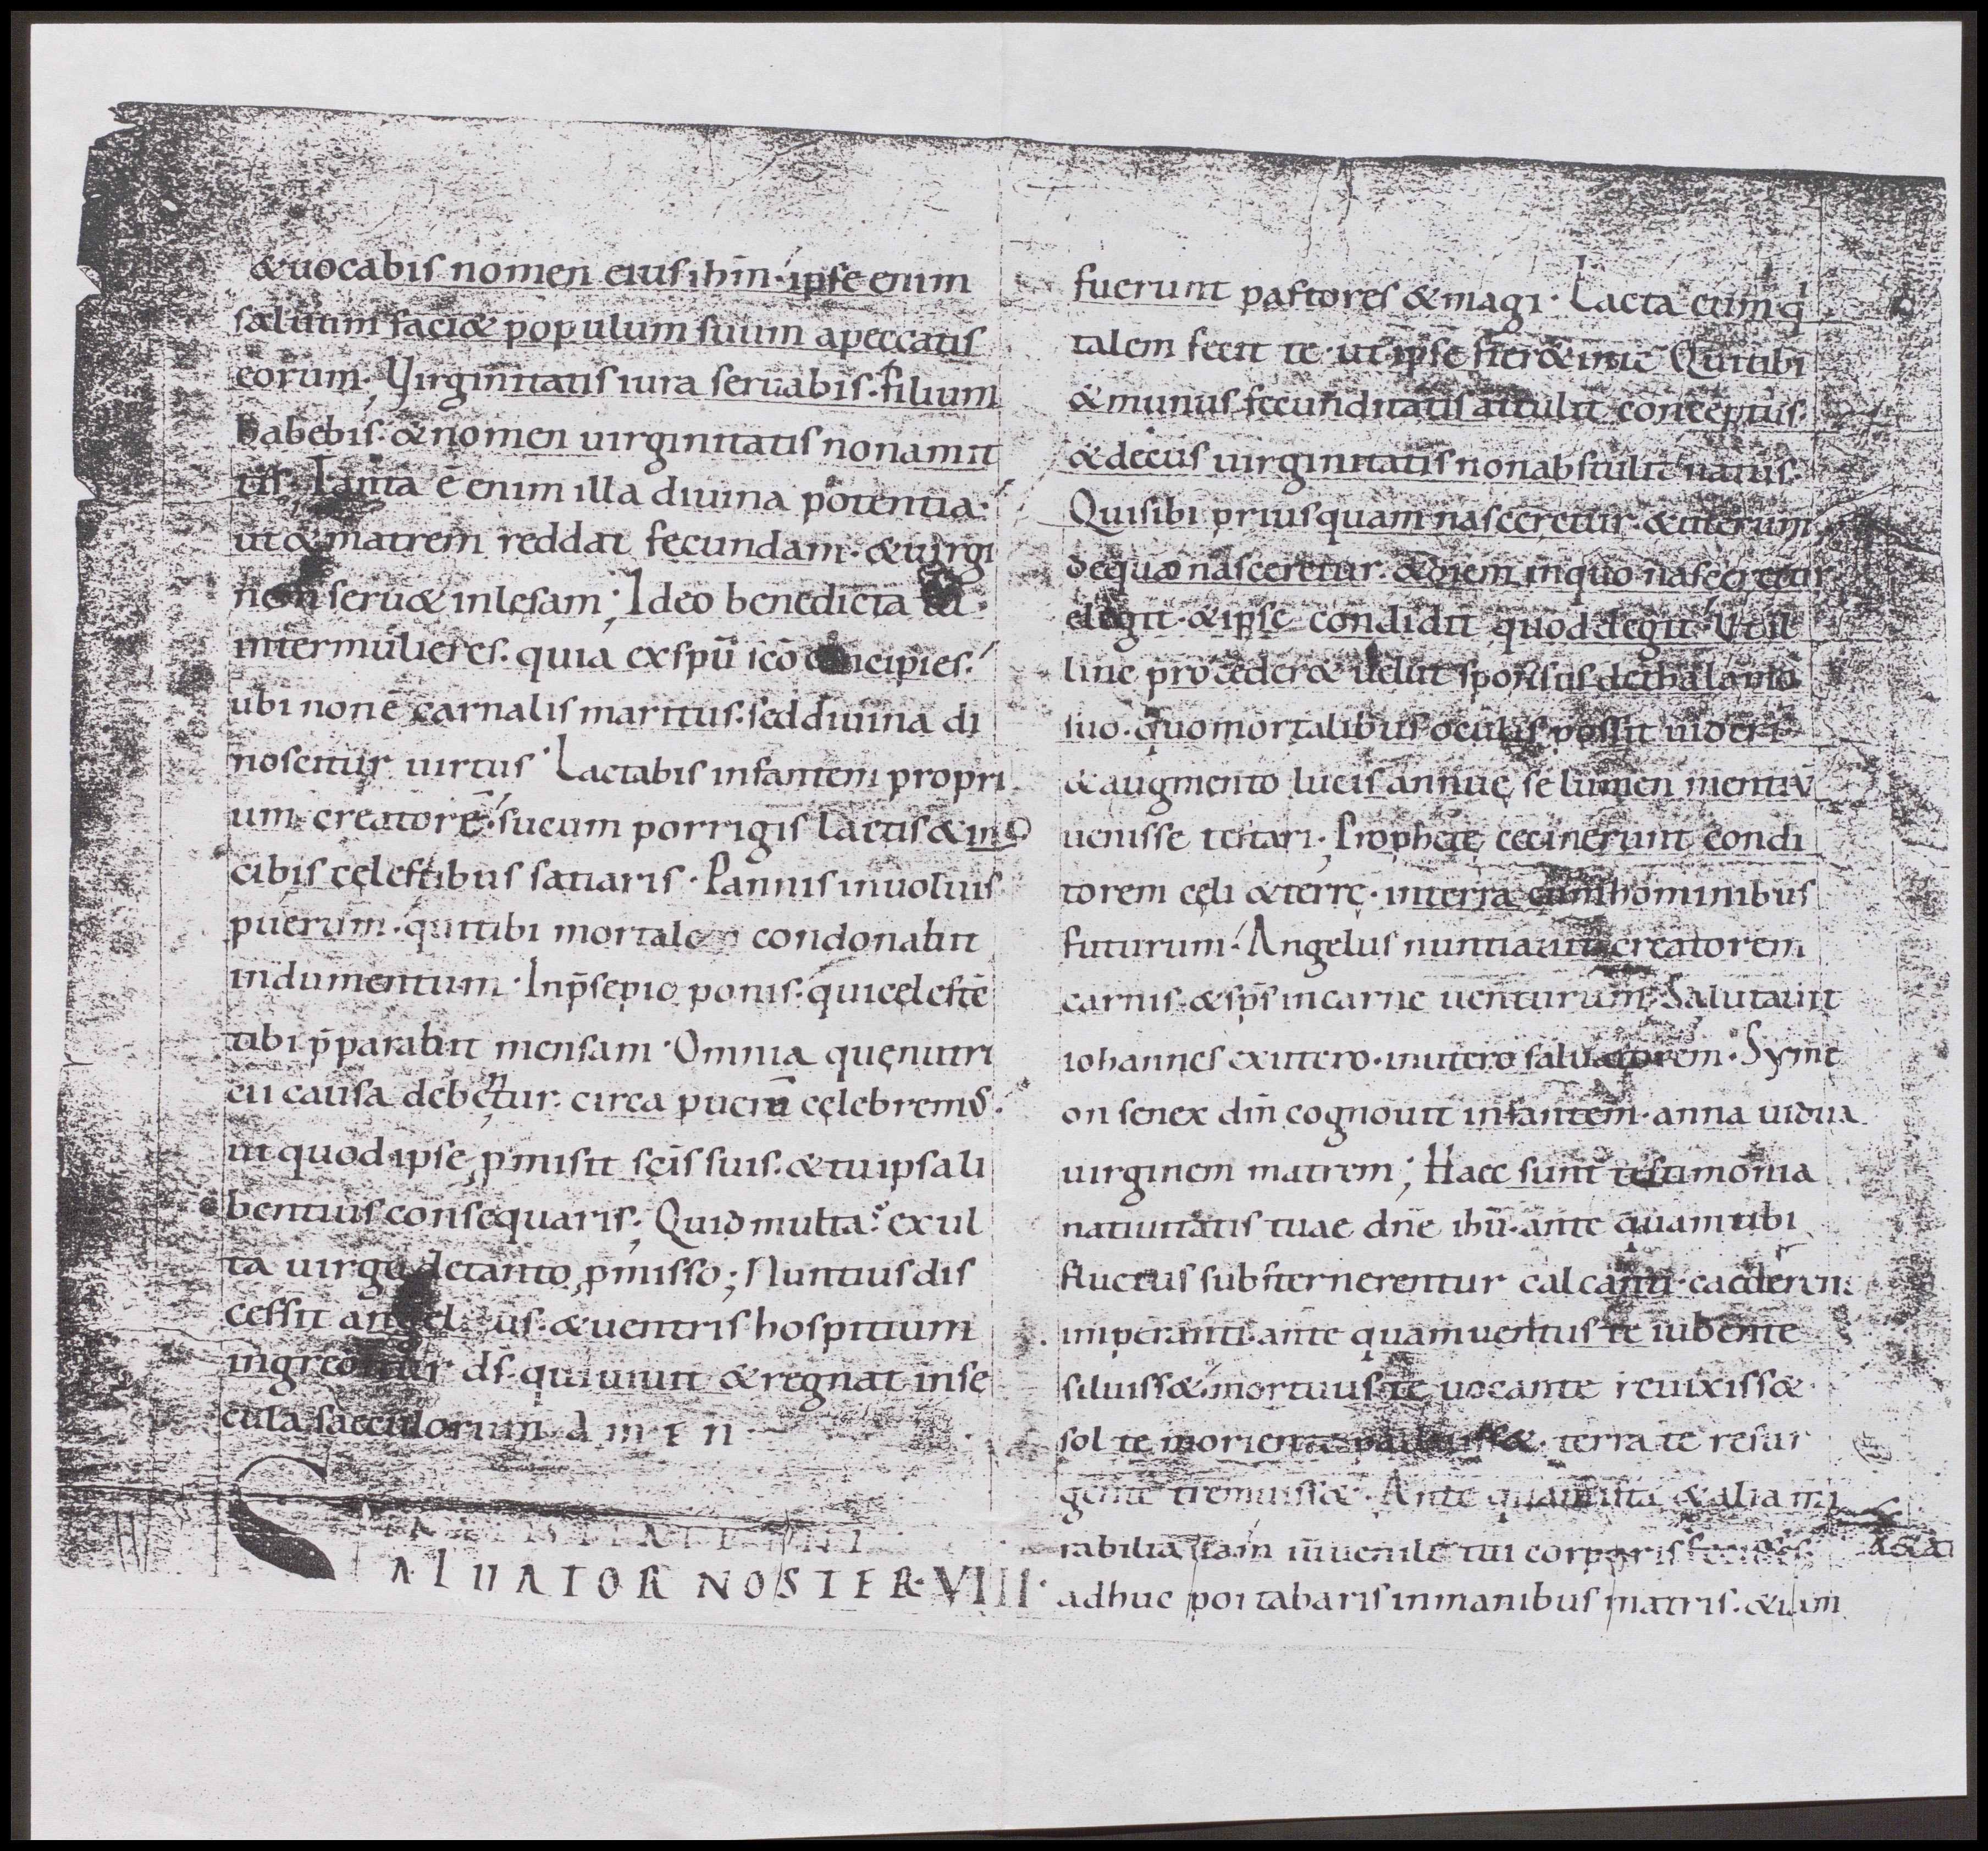 & uocabis nomen eius ihm̄· ipse enim
salutim faci& populum suum apeccatis
eorum; Virginitatis iura seruabis· filium
habebis· & nomen uirginitatis nonamit
tis; Tanta ē enim illa diuina potentia·
ut & matrem reddat fecundam· & uirgi
nem seru& inlęsam; Ideo benedicta tu
intermulieres· quia exspū scō concipies·
ubi nonē carnalis maritus· sed diuina di
noscitur uirtus· Lactabis infantem propri
um creatorē· sucum porrigis lactis & in
cibis cęlestibus satiaris· Pannis inuoluis
puerum· quitibi mortale condonabit
indumentum· Inp̄sepio ponis· quicęlestē
tibi p̄parabit mensam· Omnia quęnutri
cii causa debentur· circa puerū cęlebrems·
ut quod ipse pmisit scīs suis· & tu ipsa li
bentius consequaris; Quid multa· exul
ta uirgo detanto pmisso; Nuntius dis
cessit angelicus· & uentris hospitium
ingreditur ds̄· qui uiuit & regnat insę
cula saeculorum amen
SALUATOR NOSTER· VIIII·
fuerunt pastores & magi· Lacta eum q
talem fecit te· ut ipse fier& inte Quitibi
& munus fecunditatis attulit conceptus·
& decus uirginitatis nonabstulit natus·
Quisibi priusquam nasceretur· & uterum
dequa nasceretur· & diem inquo nasceretur
elegit· & ipse condidit quod elegit· Ut il
linc proceder& uelut sponsus dethalamo
suo· quo mortalibus oculis possit uideri
& augmento lucis annuę se lumen mentiū
uenisse testari; Prophetę cecinerunt condi
torem cęli & terrę· interra cum hominibus
futurum· Angelus nuntiauit creatorem
carnis· & sps̄ incarne uenturum; Salutauit
iohannes exutero· inutero saluatorem· Syme
on senex dm̄ cognouit infantem· anna uidua
uirginem matrem; Haec sunt testimonia
natiuitatis tuae dn̄e ihū· ante quam tibi
fluctus substernerentur calcanti· caederent
imperanti· ante quam uentus te iubente
siluiss&· mortuus te uocante reuixiss&·
sol te moriente palluiss&· terra te resur
gente tremuiss&· Ante quam ista & alia mi
rabilia iam iuuenile tui corporis
adhuc portabaris inmanibus matris· & iam